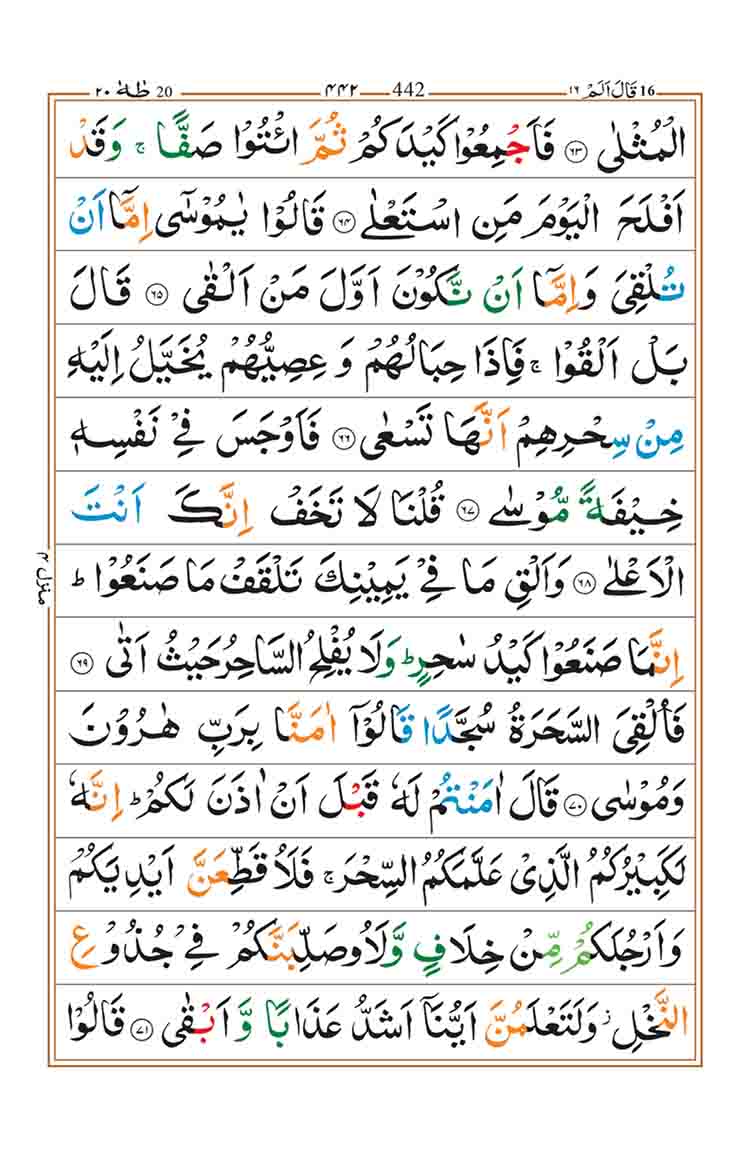 16 قَالَ اَلَمْ ١٦ 442 ۴۴۲ 20 طٰهٰ ٢٠
الْمُثْلٰى ﴿۶۳﴾ فَاَجْمِعُوْا كَيْدَكُمْ ثُمَّ ائْتُوْا صَفًّا ۚ وَقَدْ
اَفْلَحَ الْيَوْمَ مَنِ اسْتَعْلٰى ﴿۶۴﴾ قَالُوْا يٰمُوْسٰٓى اِمَّاۤ اَنْ
تُلْقِىَ وَاِمَّاۤ اَنْ نَّكُوْنَ اَوَّلَ مَنْ اَلْقٰى ﴿۶۵﴾ قَالَ
بَلْ اَلْقُوْا ۚ فَاِذَا حِبَالُهُمْ وَعِصِيُّهُمْ يُخَيَّلُ اِلَيْهِ
مِنْ سِحْرِهِمْ اَنَّهَا تَسْعٰى ﴿۶۶﴾ فَاَوْجَسَ فِيْ نَفْسِهٖ
خِيْفَةً مُّوْسٰى ﴿۶۷﴾ قُلْنَا لَا تَخَفْ اِنَّكَ اَنْتَ
الْاَعْلٰى ﴿۶۸﴾ وَاَلْقِ مَا فِيْ يَمِيْنِكَ تَلْقَفْ مَا صَنَعُوْا ؕ
اِنَّمَا صَنَعُوْا كَيْدُ سٰحِرٍ ؕ وَلَا يُفْلِحُ السَّاحِرُ حَيْثُ اَتٰى ﴿۶۹﴾
فَاُلْقِىَ السَّحَرَةُ سُجَّدًا قَالُوْۤا اٰمَنَّا بِرَبِّ هٰرُوْنَ
وَمُوْسٰى ﴿۷۰﴾ قَالَ اٰمَنْتُمْ لَهٗ قَبْلَ اَنْ اٰذَنَ لَكُمْ ؕ اِنَّهٗ
لَكَبِيْرُكُمُ الَّذِيْ عَلَّمَكُمُ السِّحْرَ ۚ فَلَاُقَطِّعَنَّ اَيْدِيَكُمْ
وَاَرْجُلَكُمْ مِّنْ خِلَافٍ وَّلَاُوصَلِّبَنَّكُمْ فِيْ جُذُوْعِ
النَّخْلِ ز وَلَتَعْلَمُنَّ اَيُّنَاۤ اَشَدُّ عَذَابًا وَّاَبْقٰى ﴿۷۱﴾ قَالُوْا
منزل ۴